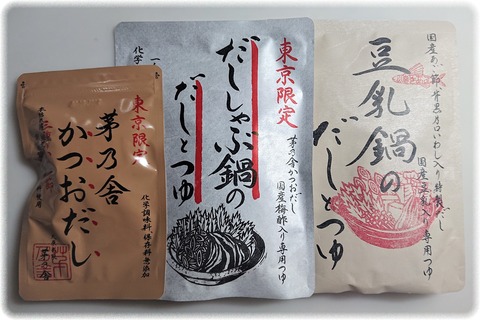 東京限定
茅乃舎
かつおだし
化学調味料・保存料無添加
東京限定
だししゃぶ鍋の
だしとつゆ
茅乃舎かつおだし
国産梅酢入り専用つゆ
豆乳鍋の
だしとつゆ
特製だし
国産豆乳入り専用つゆ